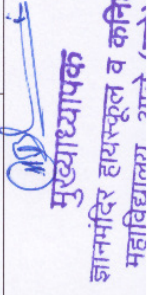 मुख्याध्यापक
ज्ञानमंदिर हायस्कूल व कनि
महाविद्यालय, आळे